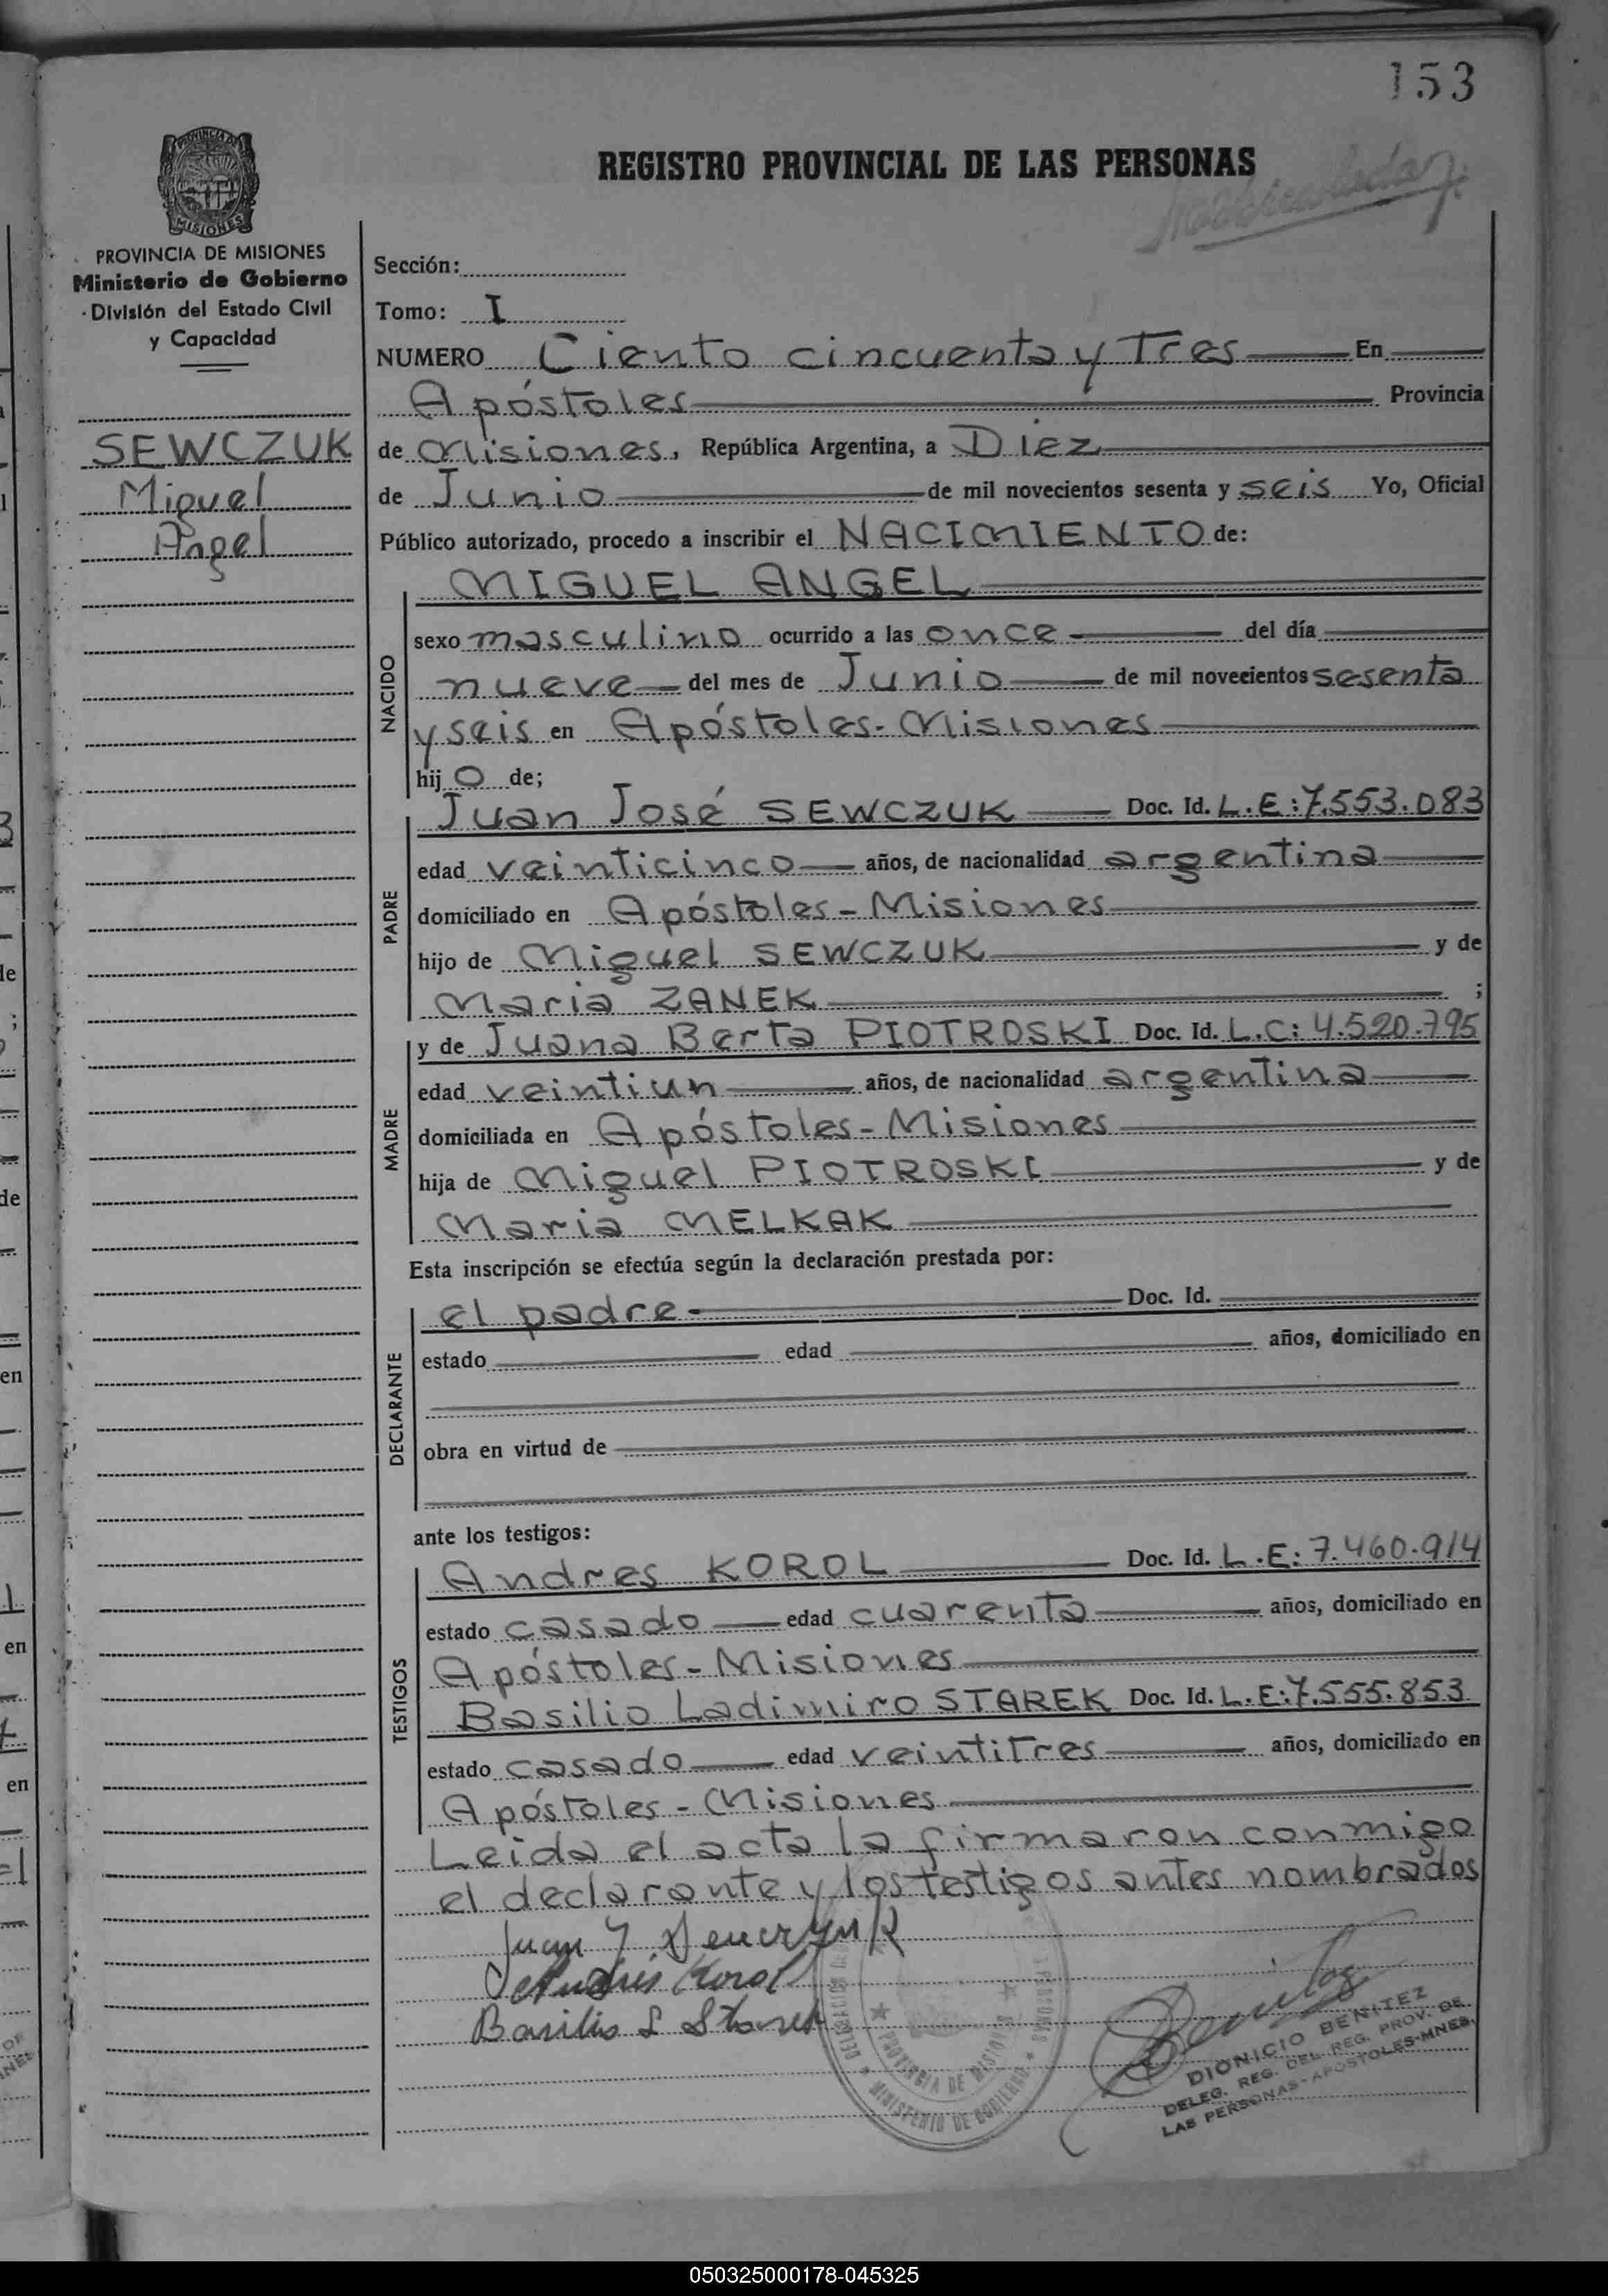 153
REGISTRO PROVINCIAL DE LAS PERSONAS
PROVINCIA DE MISIONES
PROVINCIA DE MISIONES
Ministerio de Gobierno
División del Estado Civil
y Capacidad
SEWCZUK
Miguel
Angel
Sección:
Tomo: I
NUMERO Ciento cincuenta y Tres En
Apóstoles Provincia
de Misiones, República Argentina, a Diez
de Junio de mil novecientos sesenta y seis Yo, Oficial
Público autorizado, procedo a inscribir el NACIMIENTO de:
NACIDO
MIGUEL ANGEL
sexo masculino ocurrido a las once del día
nueve del mes de Junio de mil novecientos sesenta
y seis en Apóstoles - Misiones
hijo de;
PADRE
Juan José SEWCZUK Doc. Id. L.E: 7.553.083
edad veinticinco años, de nacionalidad argentina
domiciliado en Apóstoles - Misiones
hijo de Miguel SEWCZUK y de
Maria ZANEK ;
MADRE
y de Juana Berta PIOTROSKI Doc. Id. L.C: 4.520.795
edad veintiun años, de nacionalidad argentina
domiciliada en Apóstoles - Misiones
hija de Miguel PIOTROSKI y de
Maria MELKAK
Esta inscripción se efectúa según la declaración prestada por:
DECLARANTE
el padre - Doc. Id.
estado edad años, domiciliado en
obra en virtud de
ante los testigos:
TESTIGOS
Andres KOROL Doc. Id. L.E: 7.460.914
estado casado edad cuarenta años, domiciliado en
Apóstoles - Misiones
Basilio Ladimiro STAREK Doc. Id. L.E: 7.555.853
estado casado edad veintitres años, domiciliado en
Apóstoles - Misiones
Leida el acta la firmaron conmigo
el declarante y los testigos antes nombrados
Juan J Sewczuk
Andrés Korol
Basilio L Starek
PROVINCIA DE MISIONES
MINISTERIO DE GOBIERNO
Benitez
DIONICIO BENITEZ
DELEG. REG. DEL REG. PROV. DE
LAS PERSONAS - APOSTOLES-MNES.
050325000178-045325